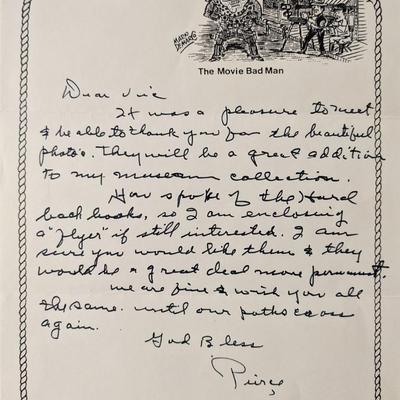 The Movie Bad Man
Dear Vic
It was a pleasure to meet
& be able to thank you for the beautiful
photo's. They will be a great addition
to my museum collection.
You spoke of the Hard
back books, so I am enclosing
a "flyer" if still interested. I am
sure you would like them & they
would be a great deal more permanent.
We are fine & wish you all
the same. until our paths cross
again.
God Bless
Pierce